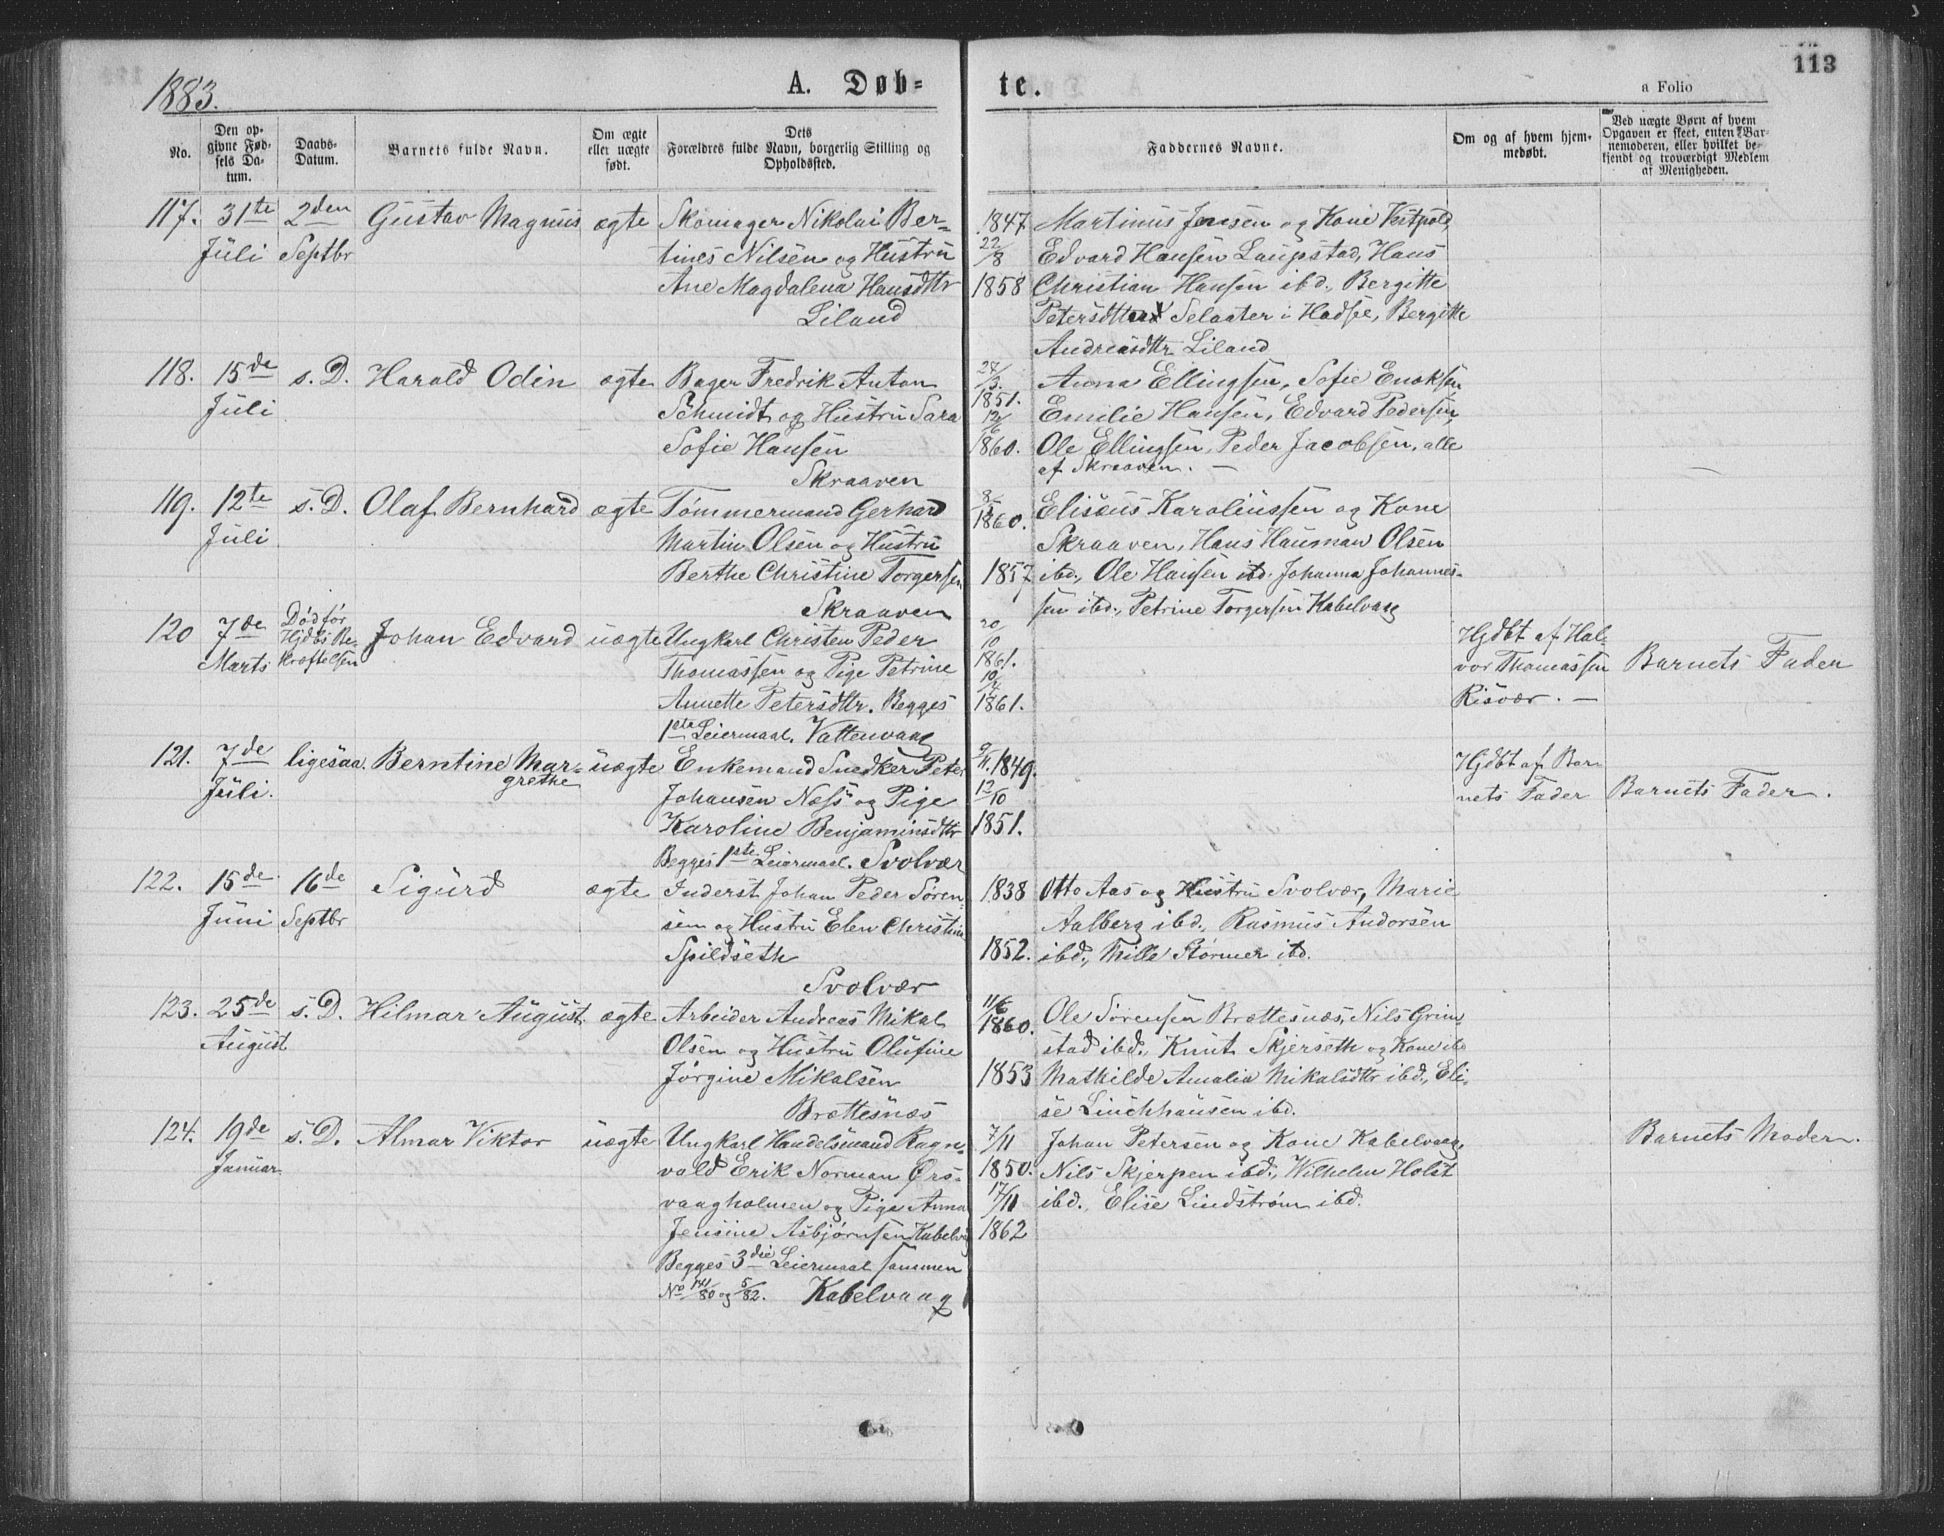 1883.
A. Døb-
te.
113
a Folio
No.
Den op-
givne Fød-
sels Da-
tum.
Daabs-
Datum.
Barnets fulde Navn.
Om ægte
eller uægte
født.
Dets
Forældres fulde Navn, borgerlig Stilling og
Opholdssted.
Faddernes Navne.
Om og af hvem hjem-
medøbt.
Ved uægte Børn af hvem
Opgaven er skeet, enten Bar-
nemoderen, eller hvilket be-
kjendt og troværdigt Medlem
af Menigheden.
117.
31te
Juli
2den
Septbr
Gustav Magnus
ægte
Skomager Nikolai Ber-
tines Nilsen og Hustru
Ane Magdalena Hansdttr
Liland
1847
22/8
1858
Martinus Jensen og Kone Vestpold,
Edvard Hansen Laupstad, Hans
Christian Hansen ibd., Bergitte
Petersdtter Selaater i Hadsel, Bergitte
Andreasdttr Liland
118.
15de
Juli
s. D.
Harald Odin
ægte
Bager Fredrik Anton
Schmidt og Hustru Sara
Sofie Hansen
Skraaven
24/3.
1851.
12/6
1860.
Anna Ellingsen, Sofie Enoksen
Emilie Hansen, Edvard Pedersen,
Ole Ellingsen, Peder Jacobsen, alle
af Skraaven. —
119.
12te
Juli
s. D.
Olaf Bernhard
ægte
Tømmermand Gerhard
Martin Olsen og Hustru
Berthe Christine Torgersen
Skraaven
8/5
1860.
1857
Eliseus Karoliussen og Kone
Skraaven, Hans Hauman Olsen
ibd., Ole Hansen ibd. Johanna Johannes-
sen ibd., Petrine Torgersen Kabelvaag
120
7de
Marts
Død før
Hjdbs Be-
kræftelsen
Johan Edvard
uægte
Ungkarl Christen Peder
Thomassen og Pige Petrine
Annette Petersdttr. Begges
1ste Leiermaal. Vattenvaag
20/10
1861.
19/4
1861.
Hjdbt af Hal-
vor Thomassen
Risvær. —
Barnets Fader
121.
7de
Juli.
ligesaa.
Berntine Mar-
grethe
uægte
Enkemand Snedker Peter
Johansen Næss og Pige
Karoline Benjaminsdttr
Begges 1ste Leiermaal. Svolvær
9/11.1849.
12/10
1851.
Hjdbt af Bar-
nets Fader
Barnets Fader.
122.
15de
Juni
16de
Septbr
Sigurd
ægte
Inderst Johan Peder Søren-
sen og Hustru Elen Christine
Spildseth
Svolvær
1838
1852.
Otto Aas og Hustru Svolvær, Marie
Aalberg ibd., Rasmus Andorsen
ibd., Mille Størmer ibd.
123.
25de
August
s. D.
Hilmar August
ægte
Arbeider Andreas Mikal
Olsen og Hustru Olufine
Jørgine Mikalsen
Brettesnæs
11/6
1860.
1853
Ole Sørensen Brettesnæs, Nils Grim-
stad ibd., Knut Skjerseth og Kone ibd
Mathilde Amalia Mikalsdttr ibd., Eli-
se Linchhausen ibd.
124.
19de
Januar
s. D.
Almar Viktor
uægte
Ungkarl Handelsmand Ragn-
vald Erik Norman Ørs-
vaagholmen og Pige Anna
Jensine Asbjørnsen Kabelvg
Begges 3die Leiermaal sammen
No 141/80 og 5/82. Kabelvaag
7/11
1850.
17/11
1862
Johan Petersen og Kone Kabelvaag,
Nils Skjerpen ibd., Wilhelm Holst
ibd., Elise Lindstrøm ibd.
Barnets Moder.